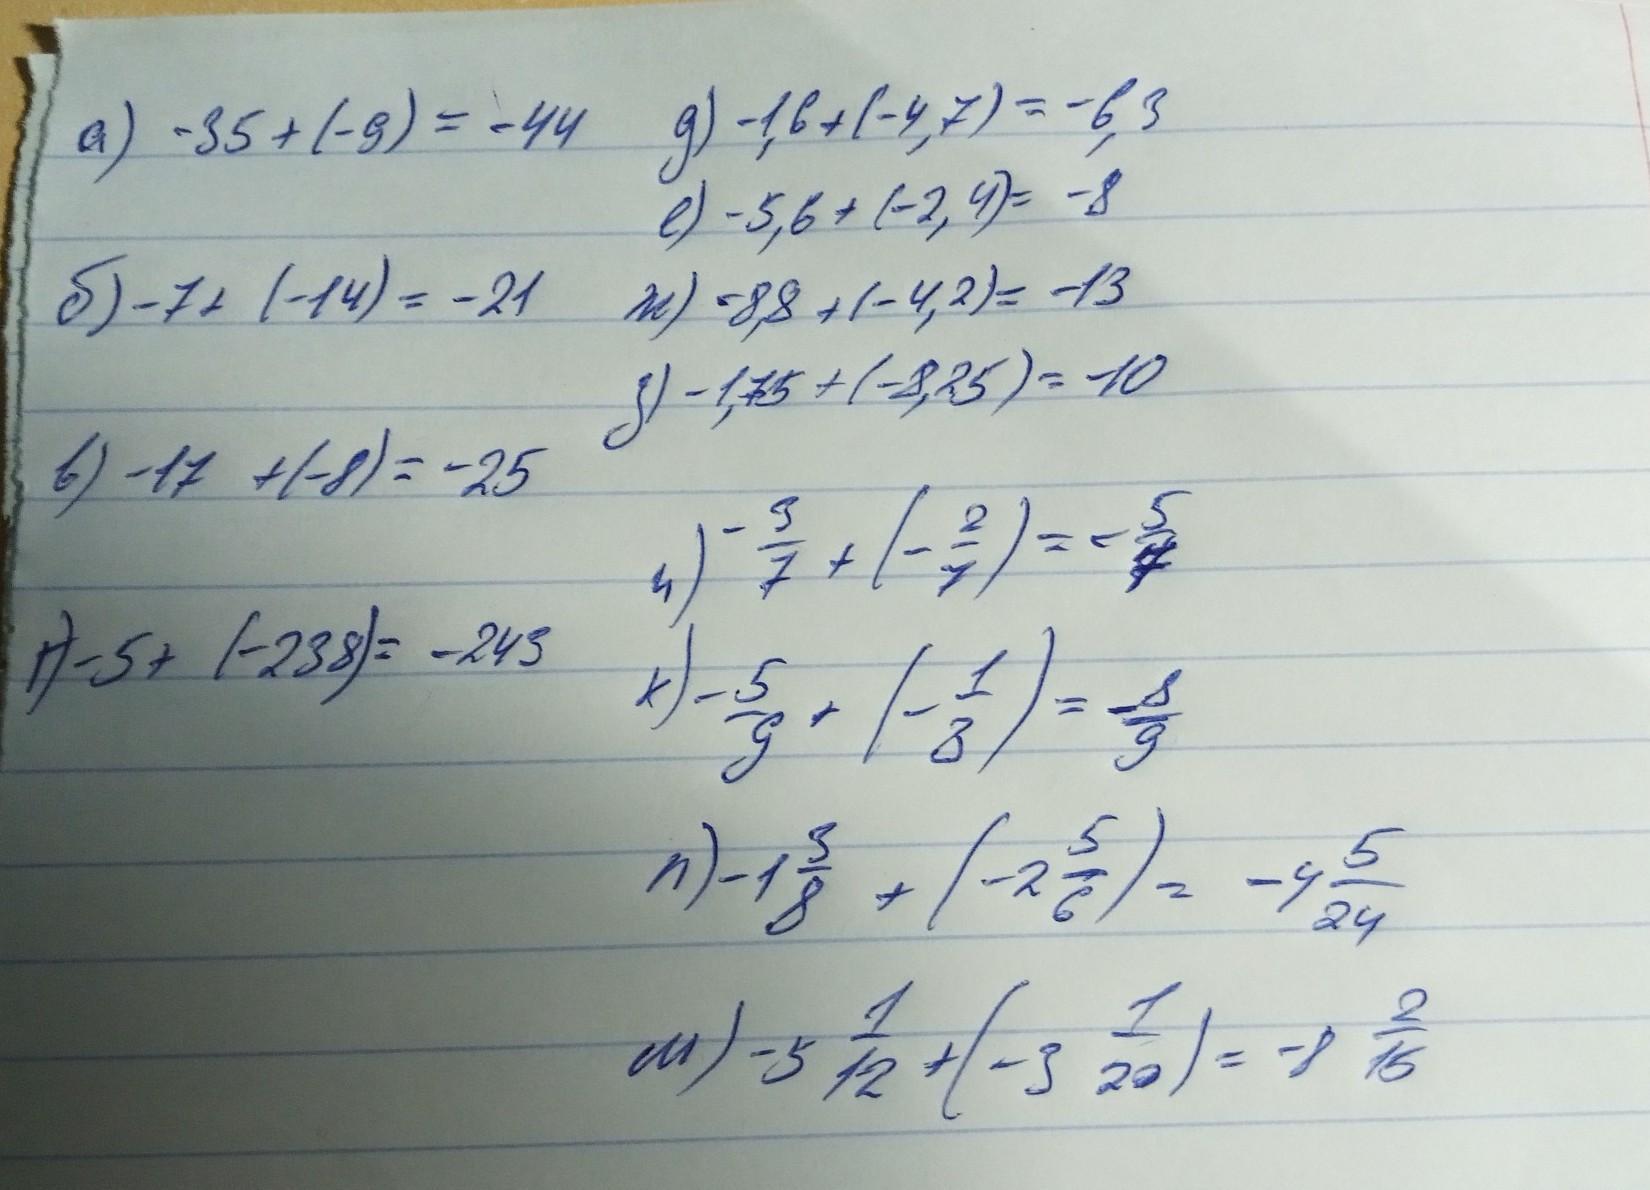 а) -35 + (-9) = -44
б) -7 + (-14) = -21
в) -17 + (-8) = -25
г) -5 + (-238) = -243
д) -1,6 + (-4,7) = -6,3
е) -5,6 + (-2,4) = -8
ж) -8,8 + (-4,2) = -13
з) -1,75 + (-8,25) = -10
и) -3/7 + (-2/7) = -5/7
к) -5/9 + (-1/3) = -8/9
л) -1 3/8 + (-2 5/6) = -4 5/24
м) -5 1/12 + (-3 1/20) = -8 2/15